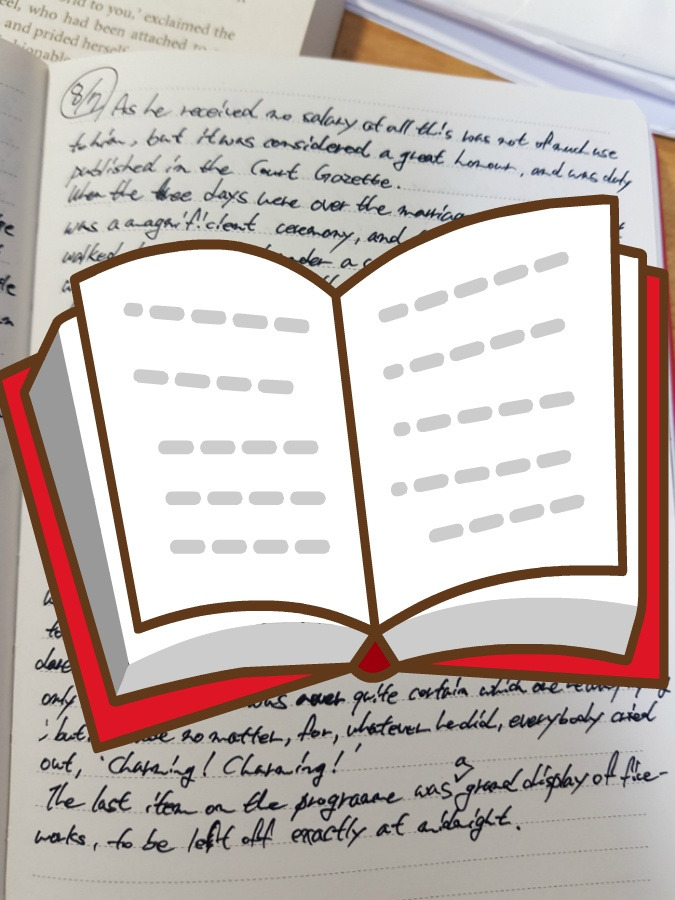 rld to you,' exclaimed the
eel, who had been attached to
and prided herself
hionable
8/7 As he received no salary at all this was not of much use
to him, but it was considered a great honour, and was duly
published in the Court Gazette.
When the three days were over the marriag
was a magnificient ceremony, and
walked under a
only was never quite certain which one
; but no matter, for, whatever he did, everybody cried
out, 'Charming! Charming!'
The last item on the programe was a grand display of fire-
works, to be left off exactly at midnight.